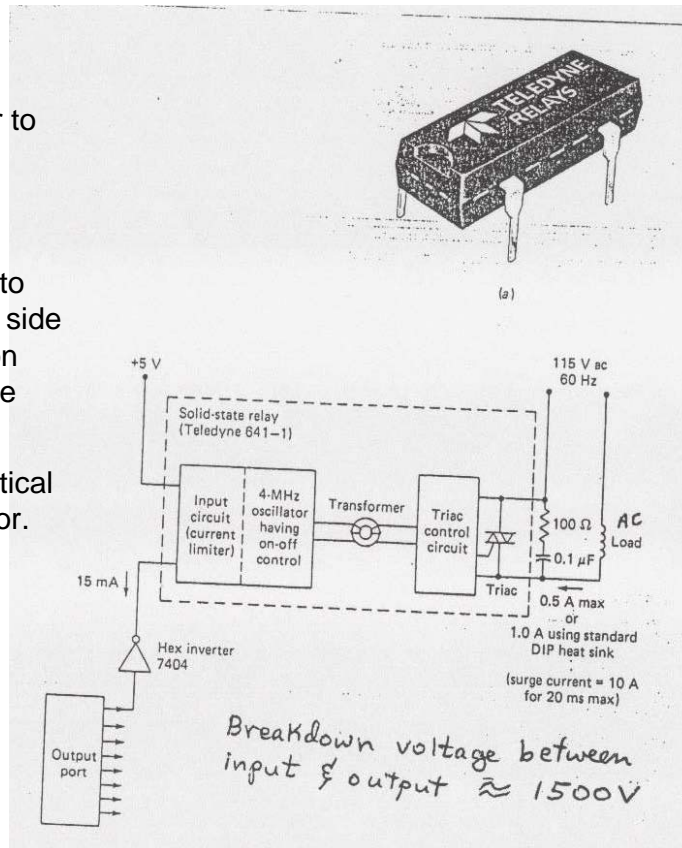 r to
to
side
on
e
tical
or.
TELEDYNE
RELAYS
(a)
+5 V
115 V ac
60 Hz
Solid-state relay
(Teledyne 641-1)
Input
circuit
(current
limiter)
4-MHz
oscillator
having
on-off
control
Transformer
Triac
control
circuit
Triac
100 Ω
0.1 μF
AC
Load
15 mA
0.5 A max
or
1.0 A using standard
DIP heat sink
(surge current = 10 A
for 20 ms max)
Hex inverter
7404
Output
port
Breakdown voltage between
input & output ≈ 1500V